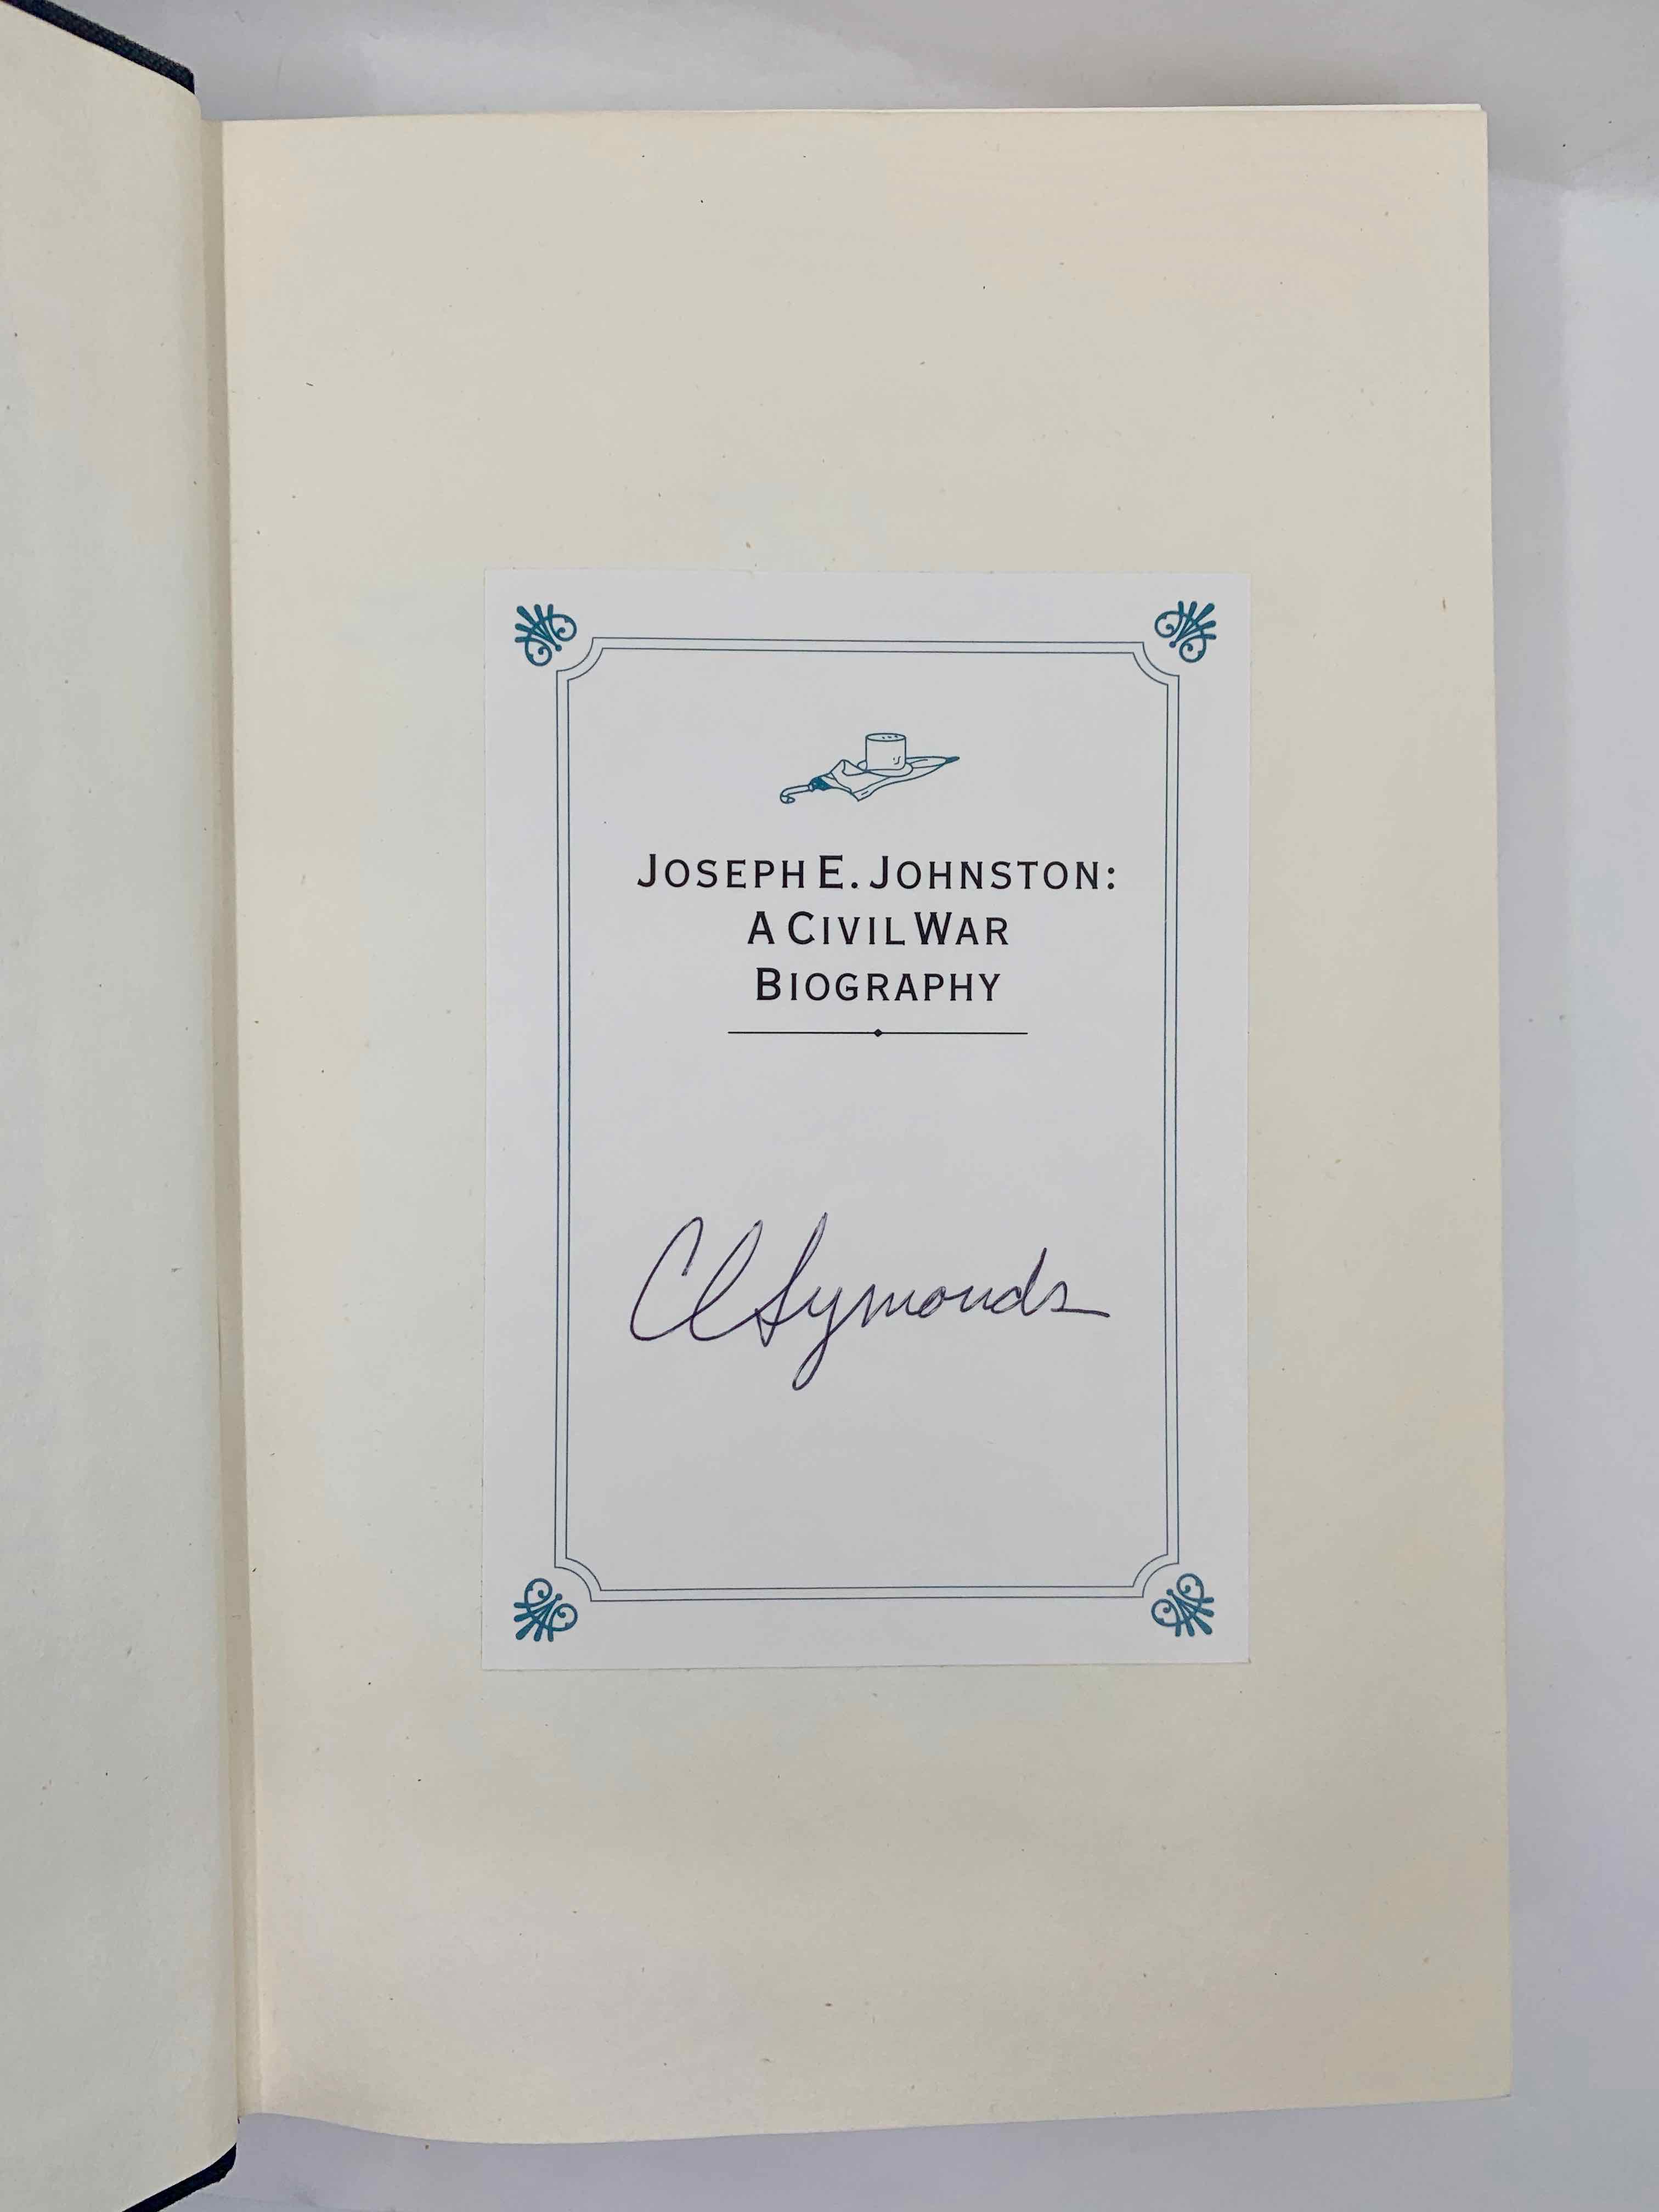 JOSEPH E. JOHNSTON:
A CIVIL WAR
BIOGRAPHY
CLSymonds